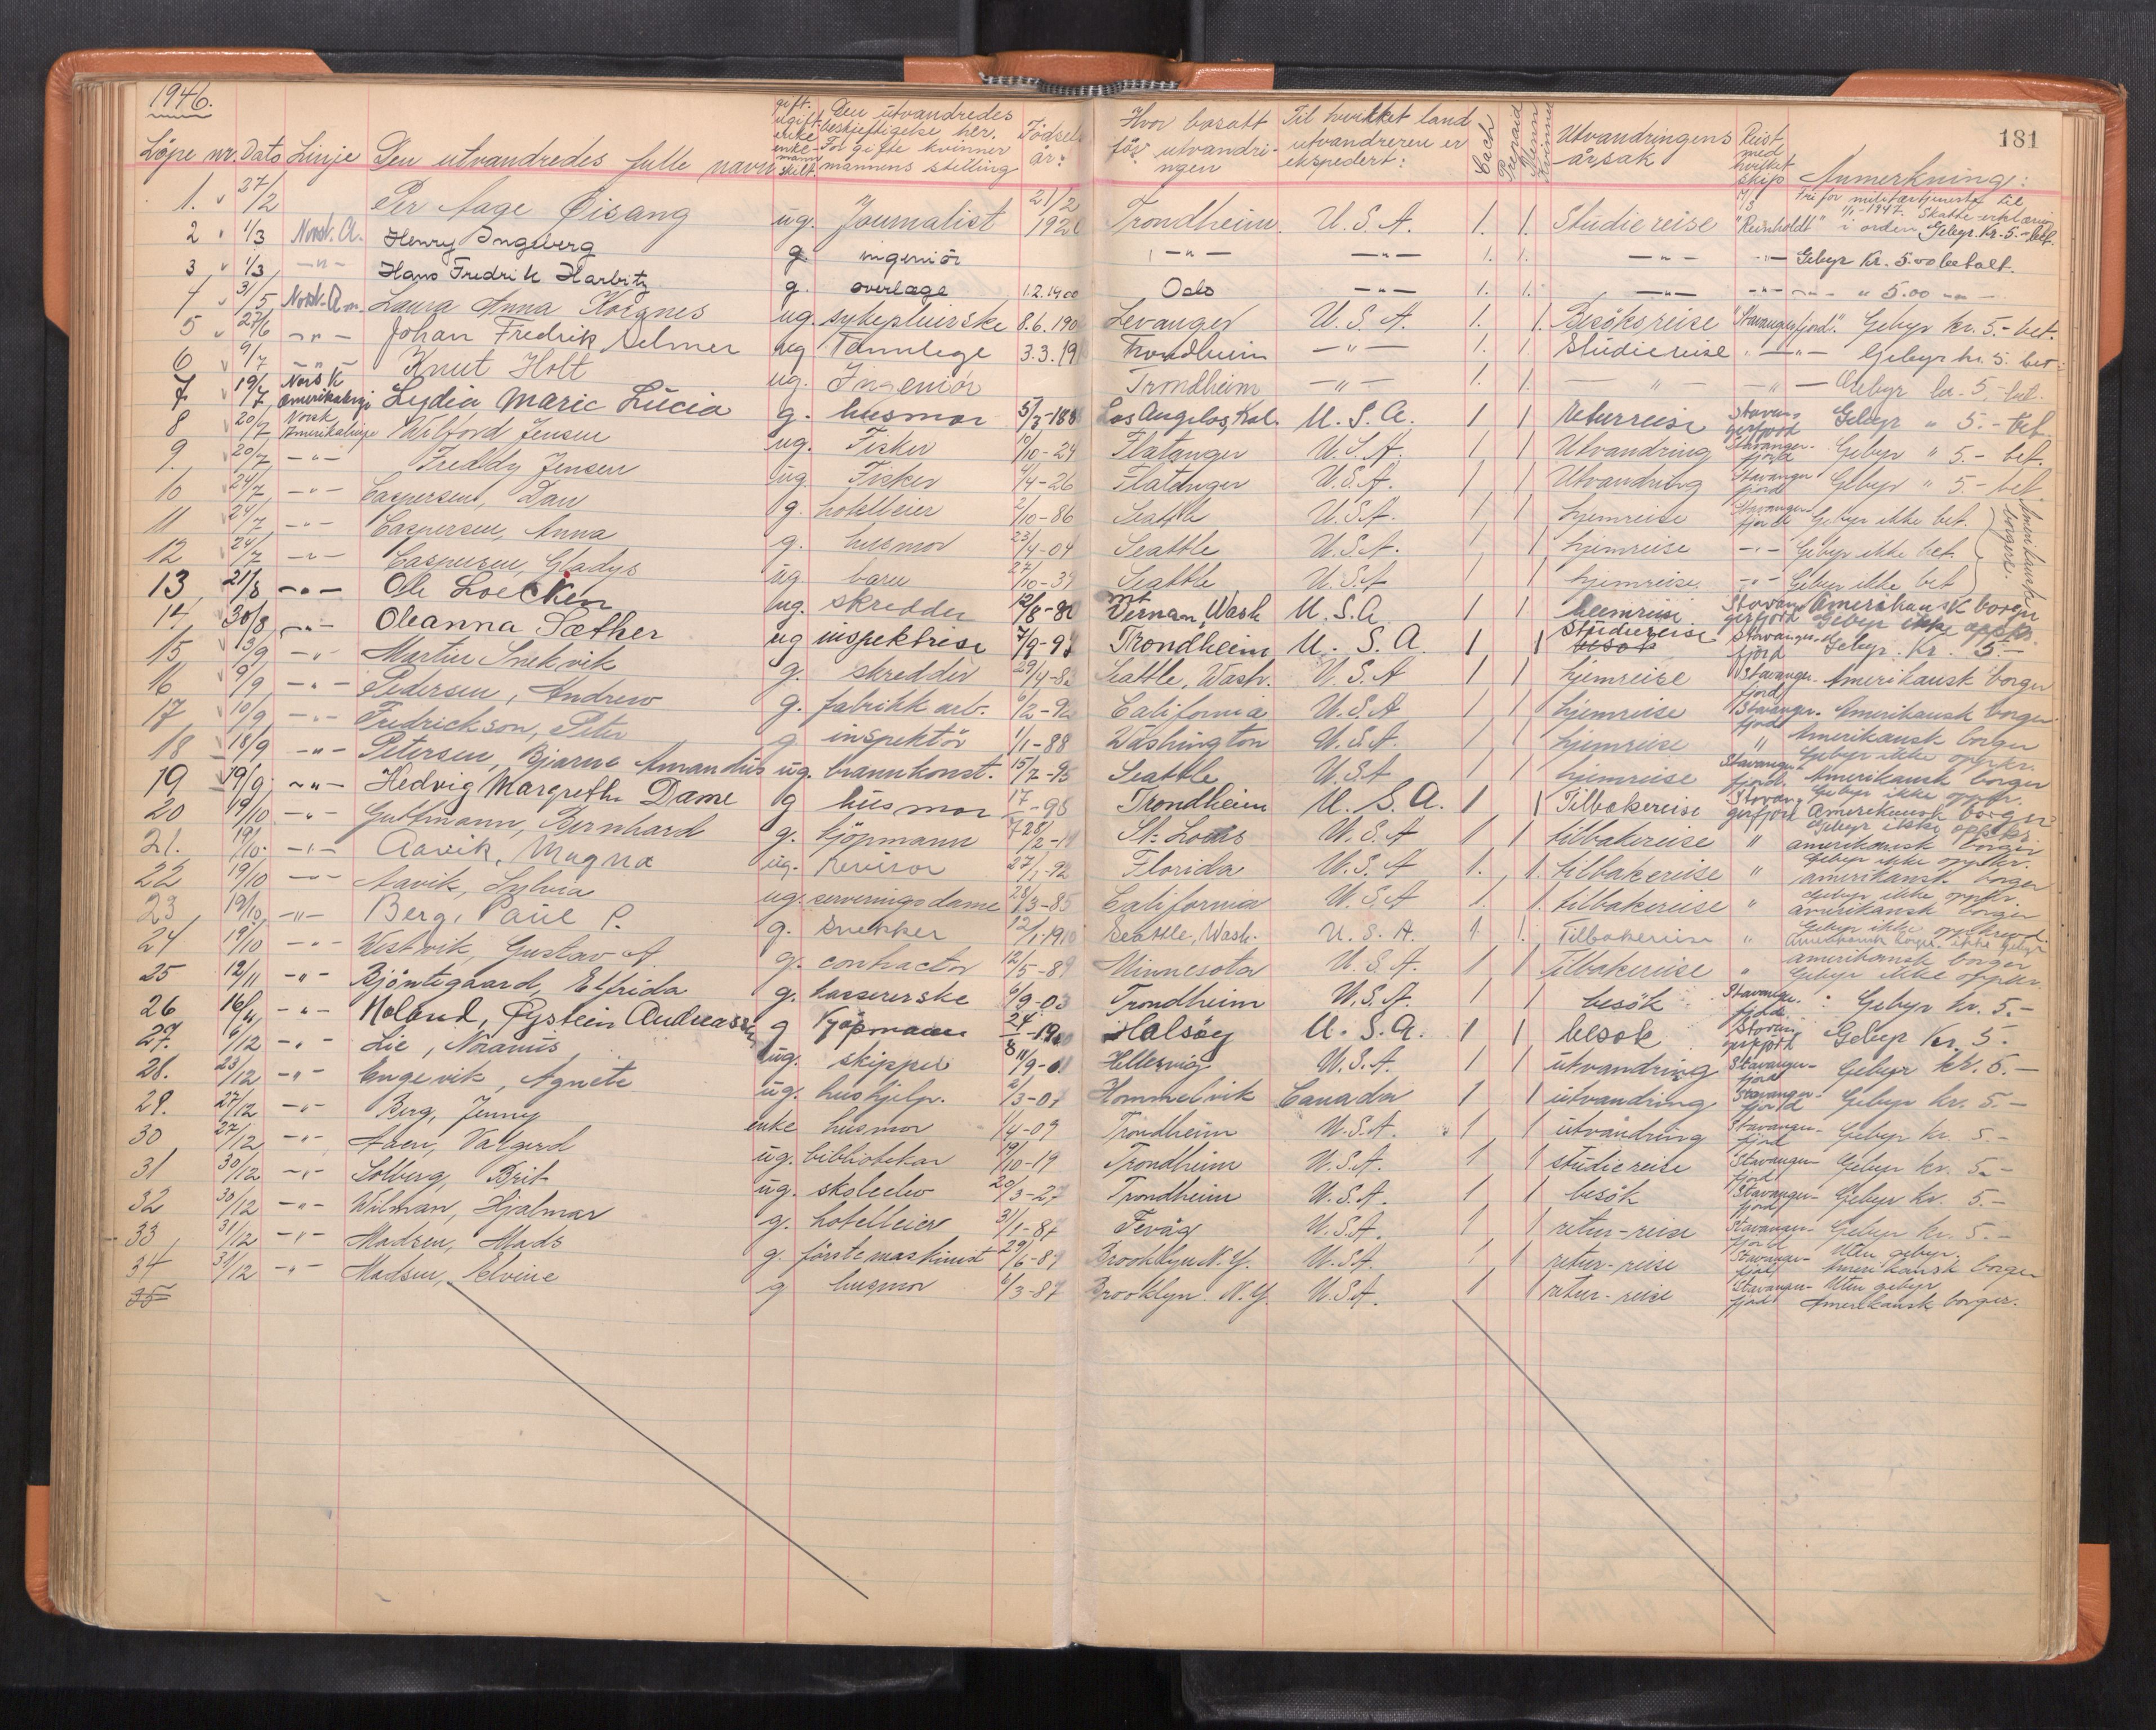 1946.
181
Löpe nr. Dato Linje Den utvandredes fulle navn gift. ugift. enke enkemann skilt. Den utvandredes beskjeftigelse her. For gifte kvinner mannens stilling Födsels år: Hvor bosatt för utvandringen Til hvilket land utvandreren er ekspedert: Cach Prepaid Menn Kvinner Utvandringens årsak Reist med hvilket skip Anmerkning:
1. 27/2 Per Aage Öisang ug. Journalist 21/2 192 Trondheim. U.S.A. 1. 1. Studiereise "Reinholdt" Fri for militærtjeneste til 1/1-1947. Skatte erklæring i orden Gebyr. Kr. 5.- bet.
2 1/3 Norsk. A. Henry Ingeberg g ingeniör -"- -"- 1. 1. -"- -"- Gebyr Kr. 5.00 betalt.
3 1/3 -"- Hans Fredrik Harbitz g. overlæge 1.2.1900 Oslo -"- 1. 1. -"- -"- -"- " 5.00 -"-
4 31/5 Norsk. A. Laura Anna Kognes ug. sykepleierske 8.6.190 Levanger U.S.A. 1. 1. Besöksreise "Stavangerfjord". Gebyr kr. 5.- bet.
5 27/6 -"- Johan Fredrik Selmer ug Tannlege 3.3.19 Trondheim -"- 1. 1. Studiereise -"- Gebyr kr. 5. bet.
6 9/7 -"- Knut Holt ug. Ingeniör Trondheim -"- 1. 1. -"- -"- Gebyr kr. 5,- bet.
7 19/7 Norsk Amerikalinje Lydia Marie Lucia g. husmor 5/3-188 Los Angelos, Kal. U.S.A. 1 1 Returreise Stavangerfjord Gebyr " 5.- bet.
8 20/7 Norsk Amerikalinje Wilford Jensen ug. Fisker 10/10-24 Flatanger U.S.A. 1 1 Utvandring Stavangerfjord Gebyr " 5.- bet.
9. 20/7 -"- Freddy Jensen ug. Fisker 4/4-26 Flatanger U.S.A. 1 1 Utvandring Stavangerfjord Gebyr " 5.- bet.
10 24/7 -"- Caspersen, Dan g. hotelleier 2/10-86 Seattle U.S.A. 1 1 hjemreise Stavangerfjord Gebyr ikke bet.
11 24/7 -"- Caspersen, Anna g. husmor 23/4-04 Seattle U.S.A. 1 1 hjemreise -"- Gebyr ikke bet. Amerikansk borgere.
12 24/7 -"- Caspersen, Gladys ug. barn 27/10-39 Seattle U.S.A 1 1 hjemreise. -"- Gebyr ikke bet
13 21/8 -"- Ole Loecken ug. skredder 12/8-80 Mt Vernon, Wash U.S.A. 1 1 heemreise. Stavangerfjord Amerikansk borger Gebyr ikke oppkr.
14 30/8 -"- Oleanna Sæther ug inspektrise 7/9-9 Trondheim U.S.A. 1 1 Studiereise besök Stavangerfjord Gebyr. Kr. 5.-
15 13/9 -"- Martin Snekvik g. skredder 29/4-8 Seattle, Wash. U.S.A 1 1 hjemreise Stavangerfjord Amerikansk borger
16 9/9 -"- Pedersen, Andrew g. fabrikk arb. 6/2-9 California U.S.A 1 1 hjemreise Stavangerfjord Amerikansk borger
17 10/9 -"- Fredrickson, Peter g inspektör 1/1-88 Washington U.S.A. 1 1 hjemreise " Amerikansk borger Gebyr ikke oppkr.
18 18/9 -"- Petersen, Bjarne Amandus ug. brannkonst. 15/7-9 Seattle U.S.A 1 1 hjemreise Stavangerfjord. Amerikansk borger Gebyr ikke oppkr.
19 19/9 -"- Hedvig Margrethe Dame g husmor 17/7-98 Trondheim U.S.A. 1 1 Tilbakereise Stavangerfjord Amerikansk borger Gebyr ikke oppkr.
20 19/10 -"- Guttmann, Bernhard g. kjöpmann 28/2- St. Louis U.S.A 1 1 tilbakereise " amerikansk borger Gebyr ikke oppkr.
21. 19/10. -"- Aavik, Magna ug. Revisor 27/1-92 Florida U.S.A 1. 1. tilbakereise " amerikansk borger Gebyr ikke oppkr.
22 19/10 -"- Aavik, Sylvia ug. serveringsdame 28/3-85 California U.S.A 1. 1. tilbakereise " amerikansk borger Gebyr ikke oppkrevd.
23 19/10 -"- Berg, Paul P. g. snekker 12/1-19 Seattle, Wash. U.S.A. 1 1. Tilbakereise " Amerikansk borger. ikke gebyr
24 19/10 -"- Westvik, Gustav A g. contractor 12/5-89 Minnesota U.S.A. 1 1 Tilbakereise " amerikansk borger Gebyr ikke oppkr.
25 12/11 -"- Björntegaard, Elfrida g. kassererske 6/9-03 Trondheim U.S.A. 1 1 besök Stavangerfjord. Gebyr kr. 5.-
26 16/11 -"- Moland, Øystein Andreassen g Kjöpmann 24/8-19 Halsöy U.S.A. 1 1 besök Stavangerfjord Gebyr Kr. 5.
27. 6/12 -"- Lie, Noranus ug. skipper 11/9-0 Hellesvig U.S.A. 1 1 utvandring Stavangerfjord Gebyr kr. 5.-
28. 23/12 -"- Engevik, Agnete ug. hushjelp. 2/3-07 Hommelvik Canada 1 1 utvandring Stavangerfjord Gebyr kr. 5.-
29. 27/12 -"- Berg, Jenny enke husmor 1/4-09 Trondheim U.S.A. 1 1 utvandring Stavangerfjord Gebyr kr. 5.-
30 27/12 -"- Aaen, Valgerd ug. bibliotekar 19/10-19 Trondheim U.S.A. 1 1 studiereise Stavangerfjord Gebyr kr. 5.-
31 30/12 -"- Solberg, Brit ug. skoleelev 20/3-27 Trondheim U.S.A. 1 1 besök Stavangerfjord Gebyr kr. 5.-
32 30/12 -"- Wilman, Hjalmar g. hotelleier 31/1-87 Fevåg U.S.A. 1 1 retur-reise Stavangerfjord Gebyr kr. 5.-
33 31/12 -"- Madsen, Mads g. förstemaskinist 29/6-8 Brooklyn N.Y. U.S.A. 1 1 retur-reise Stavangerfjord Uten gebyr. Amerikansk borger
34 31/12 -"- Madsen, Elvine g husmor 6/3-87 Brooklyn. N.Y. U.S.A. 1 1 retur-reise Stavangerfjord Uten gebyr Amerikansk borger.
35